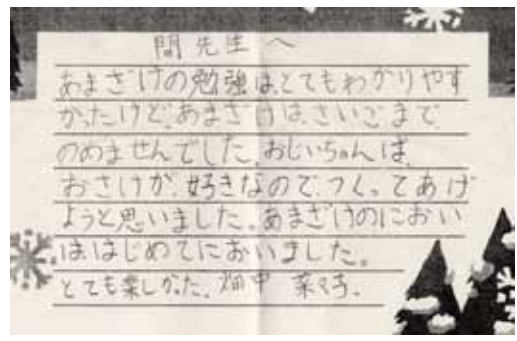 間先生へ
あまざけの勉強は、とてもわかりやす
かったけど、あまざけは、さいごまで
のめませんでした。おじいちゃんは、
おさけが、好きなので、つくってあげ
ようと思いました。あまざけのにおい
は、はじめてにおいました。
とても楽しかった。畑中 菜々子.